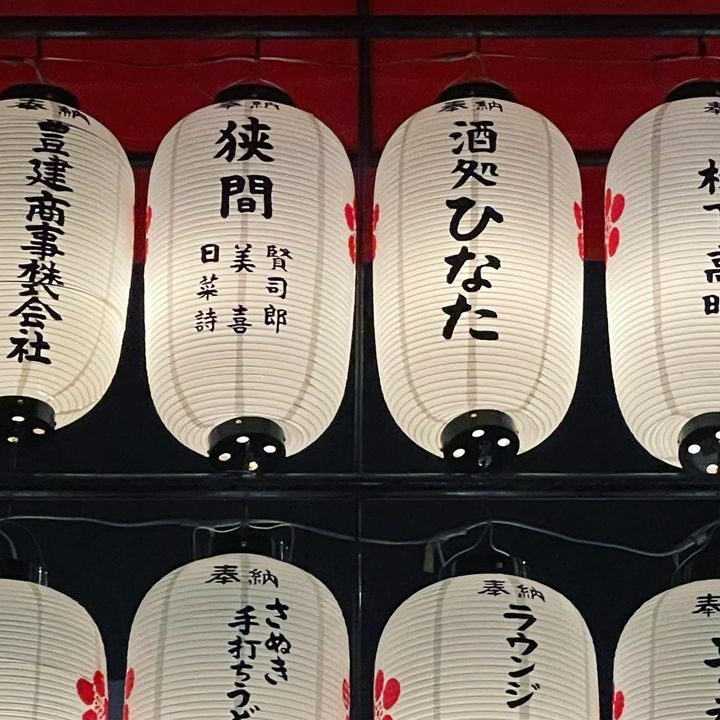 奉納
豊建商事株式会社
奉納
狭間
賢司郎
美喜
日菜詩
奉納
酒処ひなた
奉
高
奉納
さぬき
手打ちうど
奉納
ラウンジ
奉